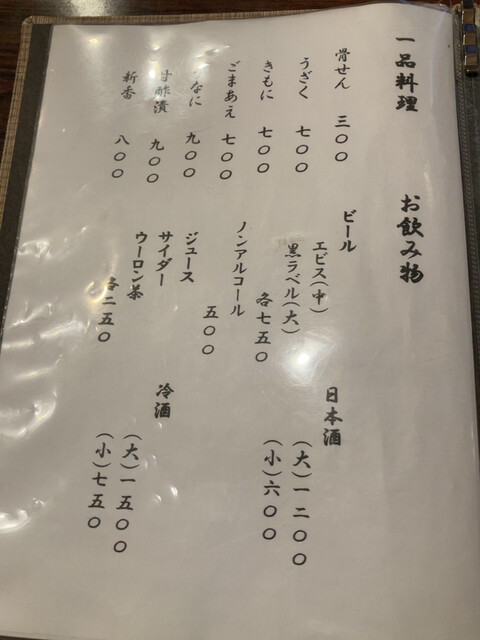 一品料理
骨せん 三〇〇
うざく 七〇〇
きもに 七〇〇
ごまあえ 七〇〇
なに 九〇〇
甘酢漬 九〇〇
新香 八〇〇
お飲み物
ビール
エビス(中)
黒ラベル(大)
各七五〇
ノンアルコール
五〇〇
ジュース
サイダー
ウーロン茶
各二五〇
日本酒
(大)一二〇〇
(小)六〇〇
冷酒
(大)一五〇〇
(小)七五〇